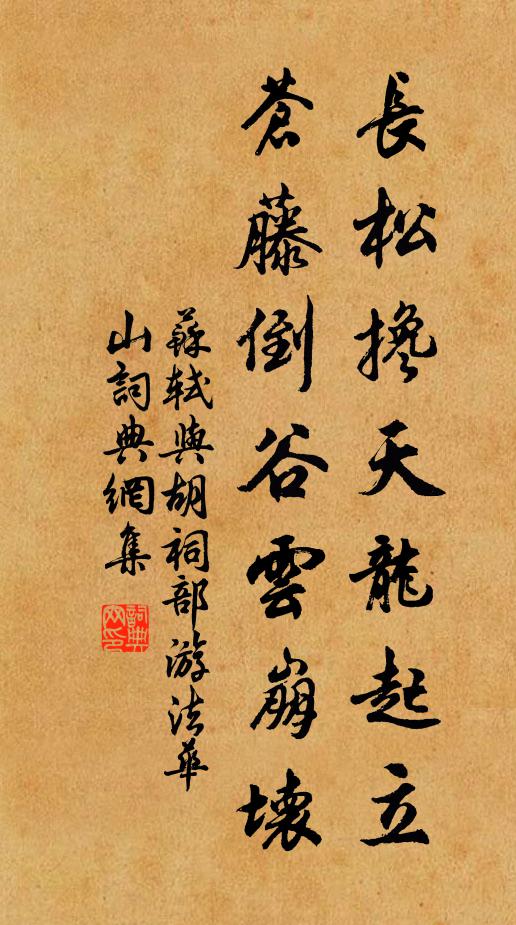 長松攙天龍起立
蒼藤倒谷雲崩壞
蘇軾與胡祠部游法華
山詞典網集
詞典
网印